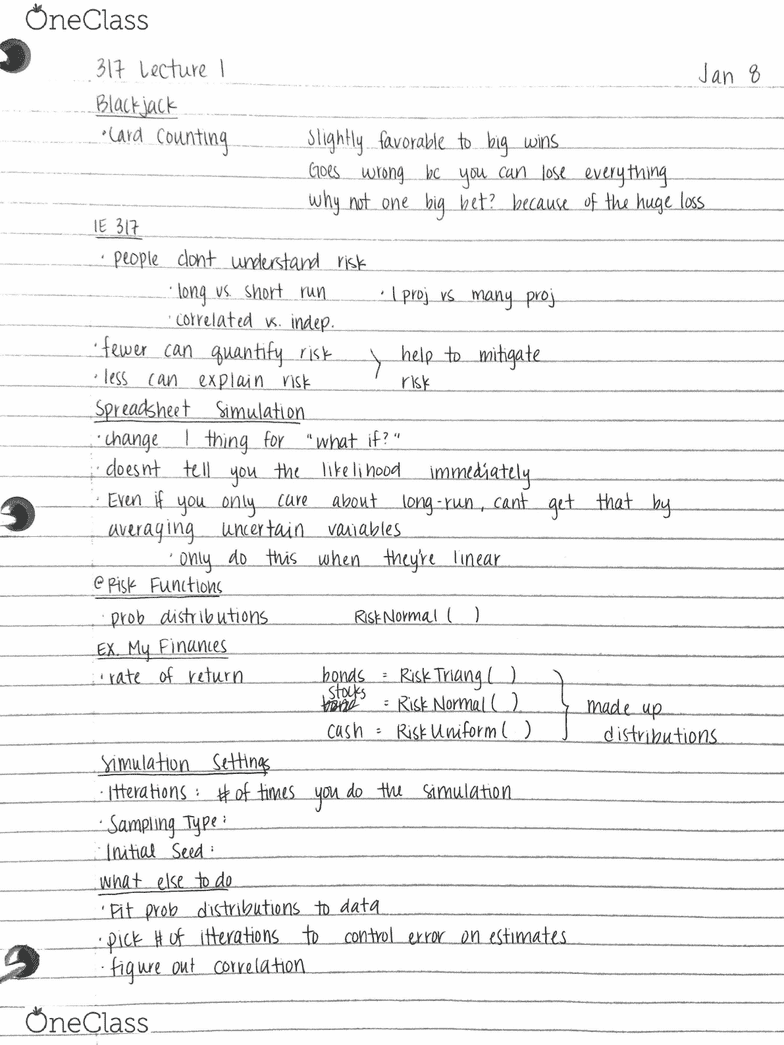 OneClass
317 Lecture 1 Jan 8
Blackjack
·Card Counting Slightly favorable to big wins
Goes wrong bc you can lose everything
why not one big bet? because of the huge loss
IE 317
· people dont understand risk
· long vs. short run · 1 proj vs many proj
· correlated vs. indep.
· fewer can quantify risk > help to mitigate
· less can explain risk risk
Spreadsheet Simulation
· change 1 thing for "what if?"
· doesnt tell you the likelihood immediately
· Even if you only care about long-run, cant get that by
averaging uncertain variables
· only do this when they're linear
@Risk Functions
· prob distributions RiskNormal ( )
EX. My Finances
· rate of return bonds = RiskTriang ( )
stocks = RiskNormal ( ) } made up
cash = RiskUniform ( ) distributions
Simulation Settings
· Itterations : # of times you do the simulation
· Sampling Type :
· Initial Seed :
what else to do
· Fit prob distributions to data
· pick # of itterations to control error on estimates
· figure out correlation
OneClass